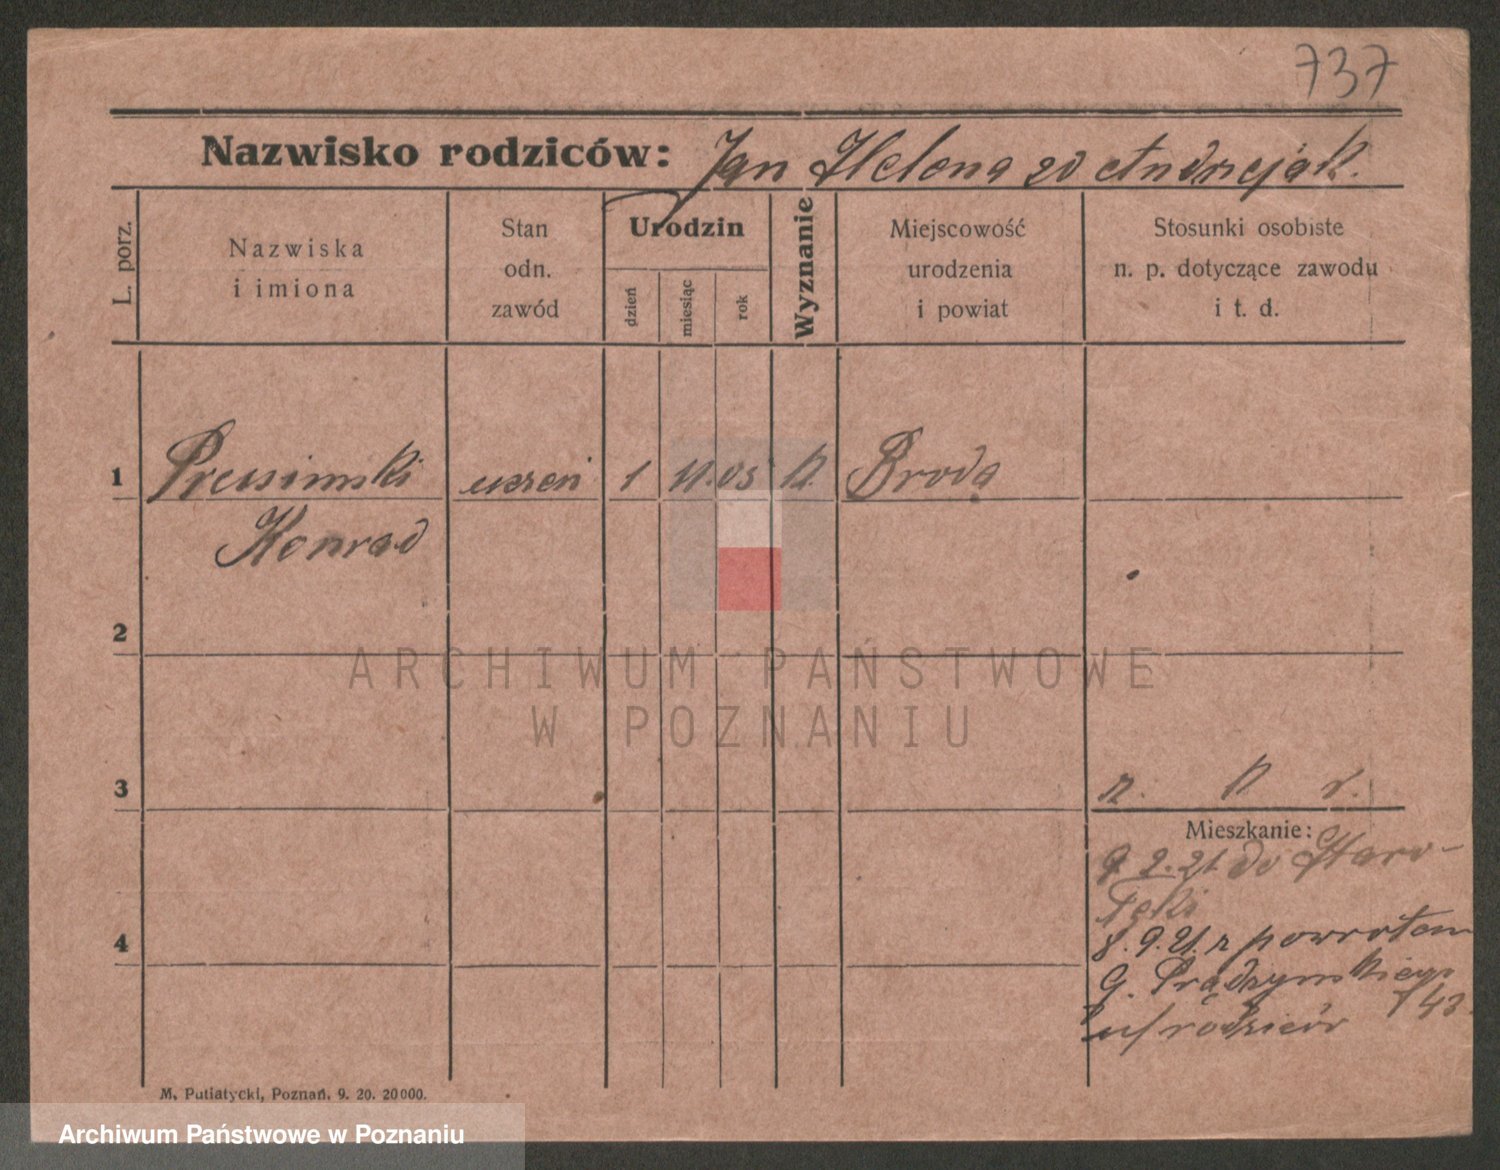 737
Nazwisko rodziców: Jan Helena zd Andrzejak.
L. porz.
Nazwiska
i imiona
Stan
odn.
zawód
Urodzin
dzień
miesiąc
rok
Wyznanie
Miejscowość
urodzenia
i powiat
Stosunki osobiste
n. p. dotyczące zawodu
i t. d.
1 uczeń 1 11.05 k. Broda
Konrad
2
3
r. k r.
Mieszkanie:
9.2.21 do Staro-
łęki
8.9.21. z powrotem
G. Prądzyńskiego
43.
u/rodziców
4
M. Putiatycki, Poznań. 9. 20. 20000.
ARCHIWUM PAŃSTWOWE
W POZNANIU
Archiwum Państwowe w Poznaniu